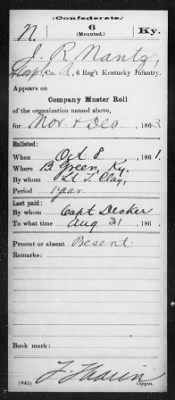 (Confederate.)
N. 6 Ky.
(Mounted.)
J. R. Nantz,
Co. 6 Reg't Kentucky Infantry.
Appears on
Company Muster Roll
of the organization named above,
for Nov & Dec, 1862
Enlisted:
When Oct 8, 1861
Where B. Green, Ky.
By whom Lt. T. Clay,
Period 1 year
Last paid:
By whom Capt Decker
To what time Aug 31, 186
Present or absent Present
Remarks:
Book mark:
(642) Copyist.